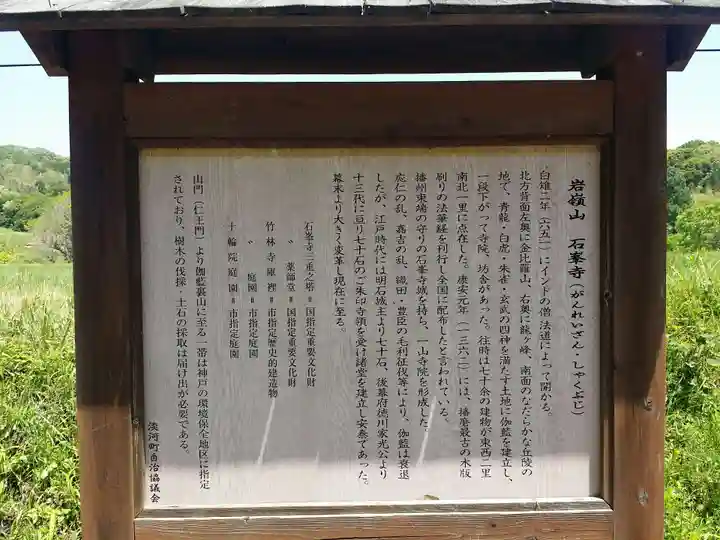 岩嶺山　石峯寺（がんれいざん・しゃくぶじ）
白雉二年（六五一）にインドの僧法道によって開かる。
北方背面左奥に金比羅山、右奥に蘇ヶ峰、南面のなだらかな丘陵の
地で、青龍・白虎・朱雀・玄武の四神を満たす土地に伽藍を建立し、
一段下がって寺院、坊舎があった。往時は七十余の建物が東西二里
南北一里に点在した。康安元年（一三六一）には、播磨最古の木版
刷りの法華経を刊行し全国に配布したと言われている。
播州東端の守りの石峯寺城を持ち、一山寺院を形成した。
応仁の乱、嘉吉の乱、織田・豊臣の毛利征伐等により、伽藍は衰退
したが、江戸時代には明石城主より七十石、後幕府徳川家光公より
十三代に亘り七十石のご朱印寺領を受け諸堂を建立し安泰であった。
幕末より大きく変革し現在に至る。
石峯寺三重之塔＝国指定重要文化財
〃　薬師堂＝国指定重要文化財
〃　庭園＝市指定庭園
竹林寺庫裡＝市指定歴史的建造物
十輪院庭園＝市指定庭園
山門（仁王門）より伽藍裏山に至る一帯は神戸の環境保全地区に指定
されており、樹木の伐採・土石の採取は届け出が必要である。
淡河町自治協議会